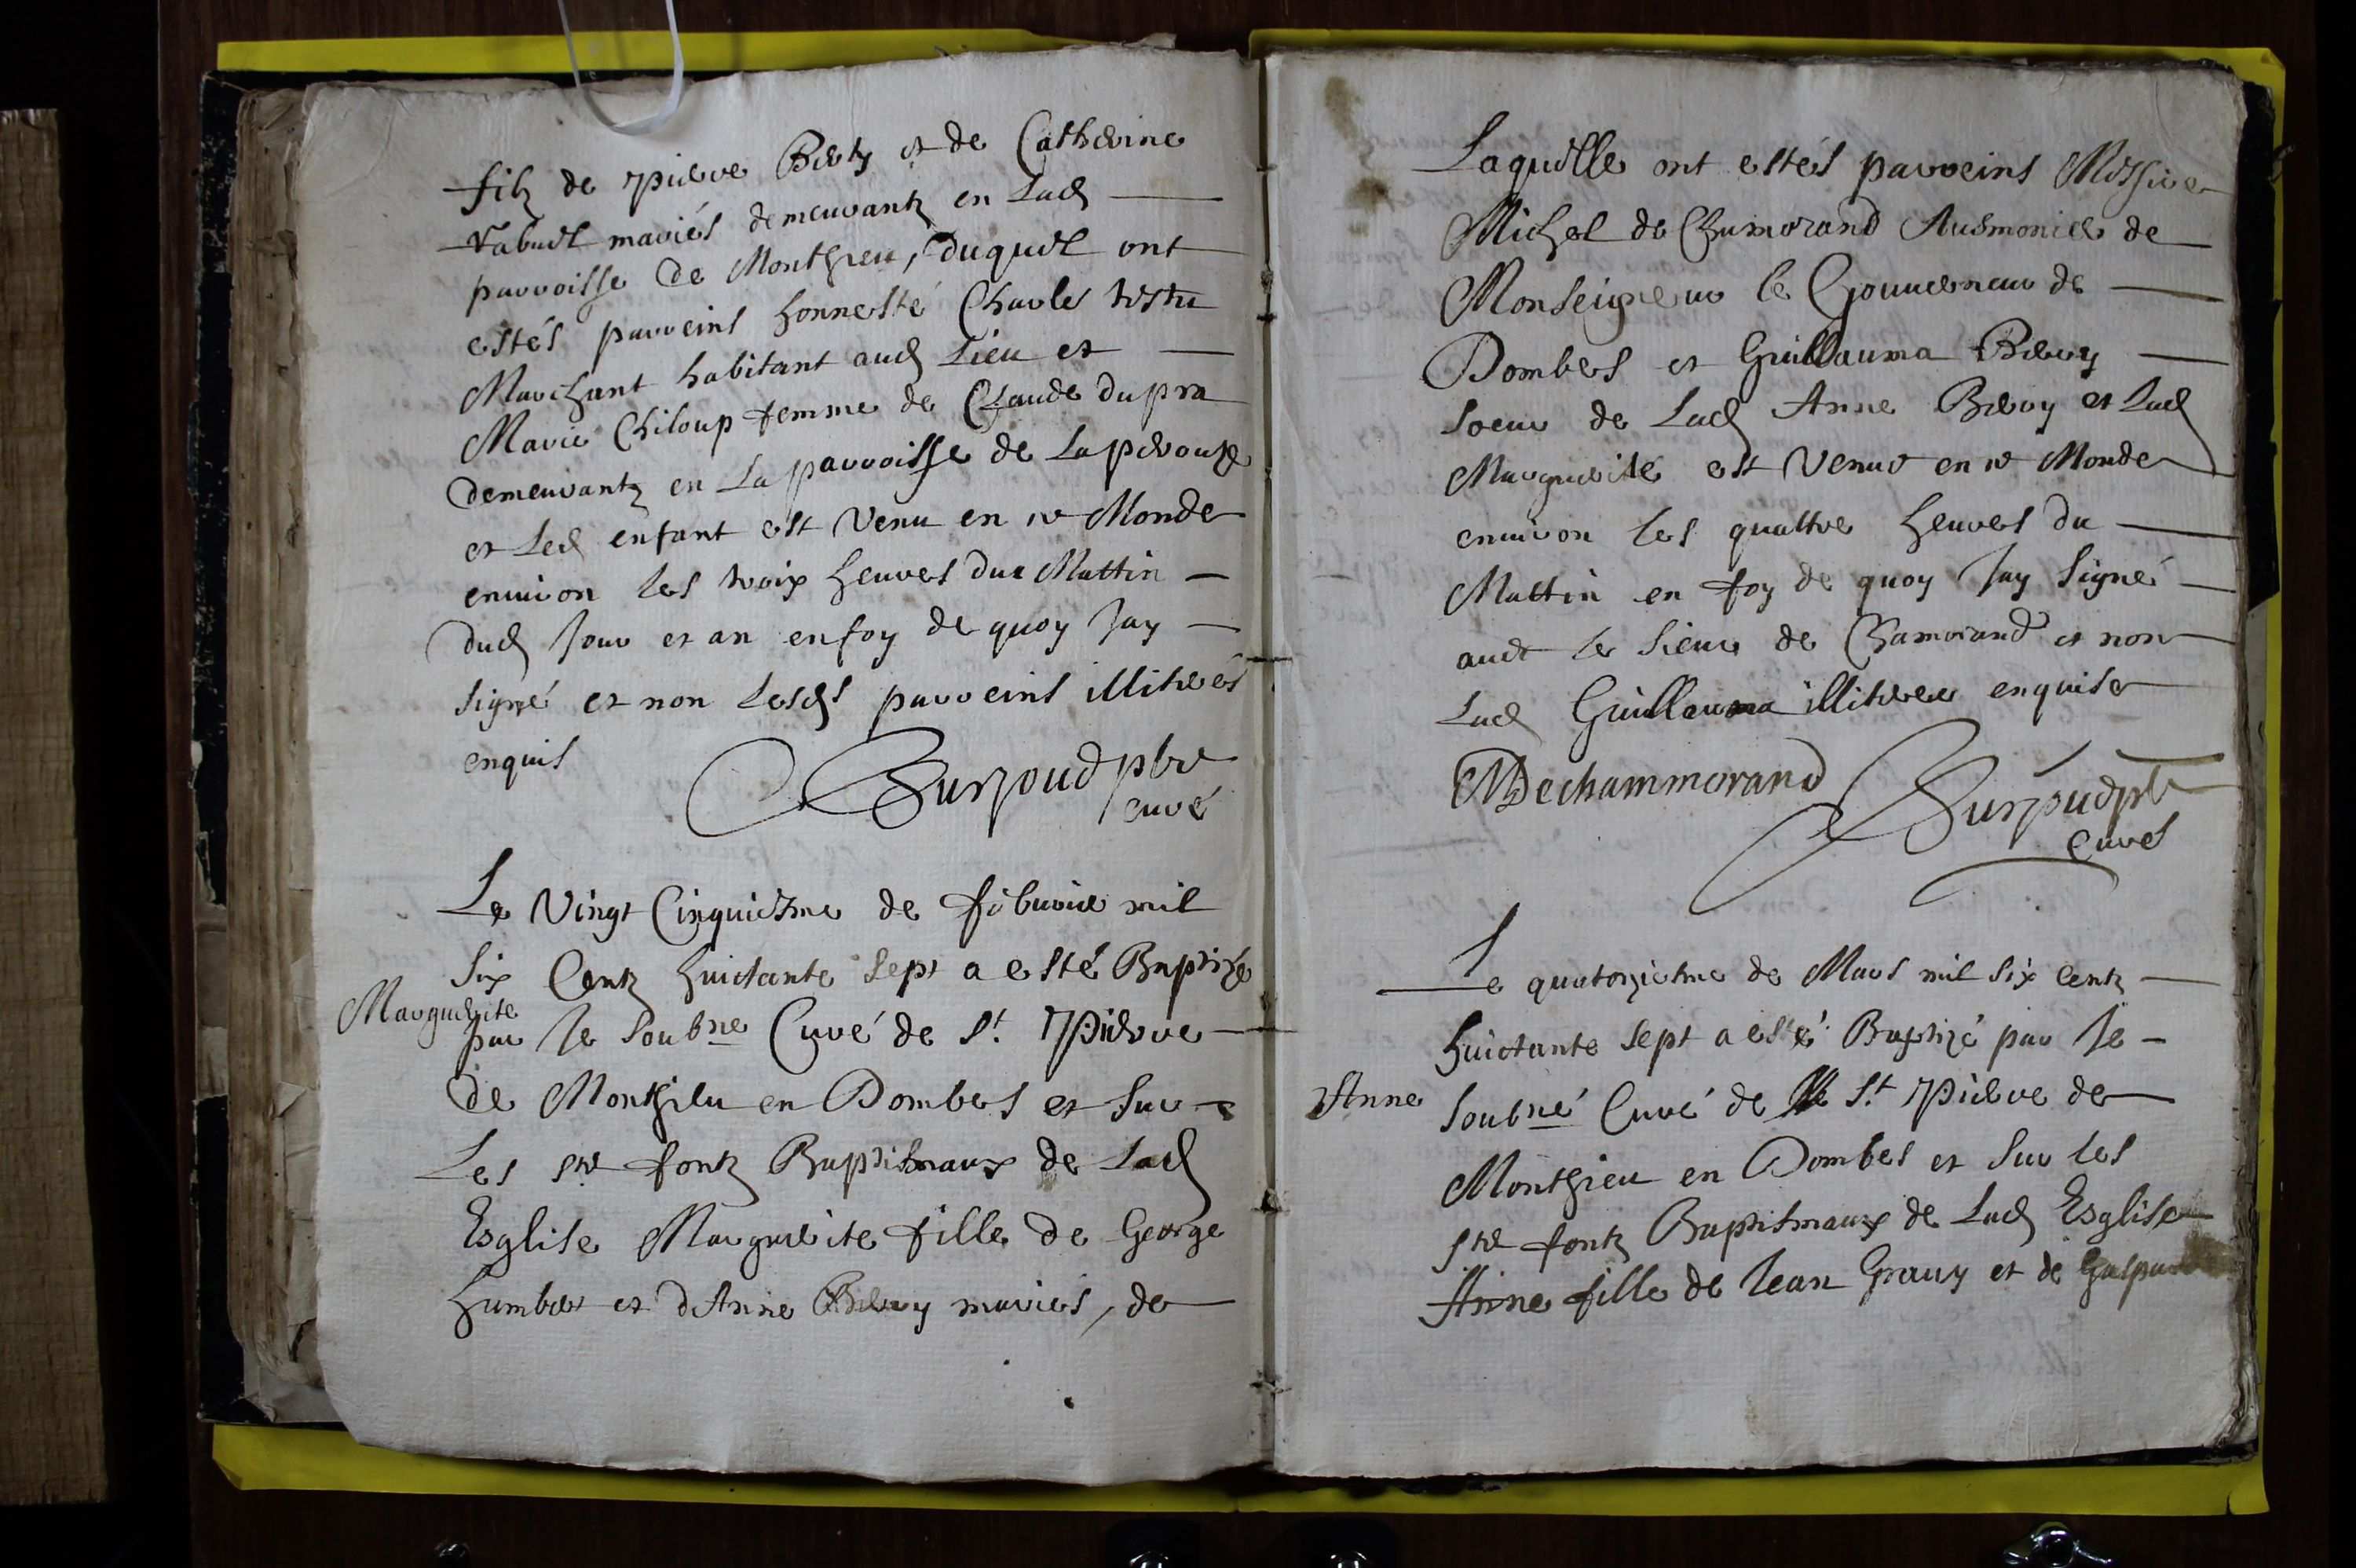 filz de pierre Bert et de Catherine
Rabuel mariés demeurantz en Lad
parroisse de Monthieu, duquel ont
estés parreins honneste Charles
Marchant habitant aud Lieu et
Marie Chiloup femme de Claude dupra
demeurantz en La parroisse de Laperouze
et Led enfant est Venu en ce Monde
environ les troix heures dux Mattin
dud Jour et an en foy de quoy Jay
signé et non Lesds parreins illiterés
enquis
pbre
curé
Le Vingt Cinquiesme de febvrie mil
Six Centz huictante Sept a esté Baptizé
Marguerite
par Je Soubne Curé de St. Pierre
de Monthieu en Dombes et Sur
Les ste fontz Baptismaux de Lad
Esglise Marguerite fille de George
humber et dAnne Bevry mariés, de
Laquelle ont estés parreins Messire
Michel de Chamorand Ausmonier de
Monseigneur le Gouverneur de
Dombes et Guillauma Bevry
Soeur de Lad Anne Bevry et Lad
Marguerite est Venue en ce Monde
environ les quattre heures du
Mattin en foy de quoy Jay Signé
avec le Sieur de Chamorand et non
Lad Guillauma illiteree enquise
MDechammorand
curé
Le quatorziesme de Mars mil Six Centz
huictante Sept a esté Baptizé par Je
Anne
Soubné Curé de St Pierre de
Monthieu en Dombes et Sur les
ste fontz Baptismaux de Lad Esglise
Anne fille de Jean Gravy et de Gaspard